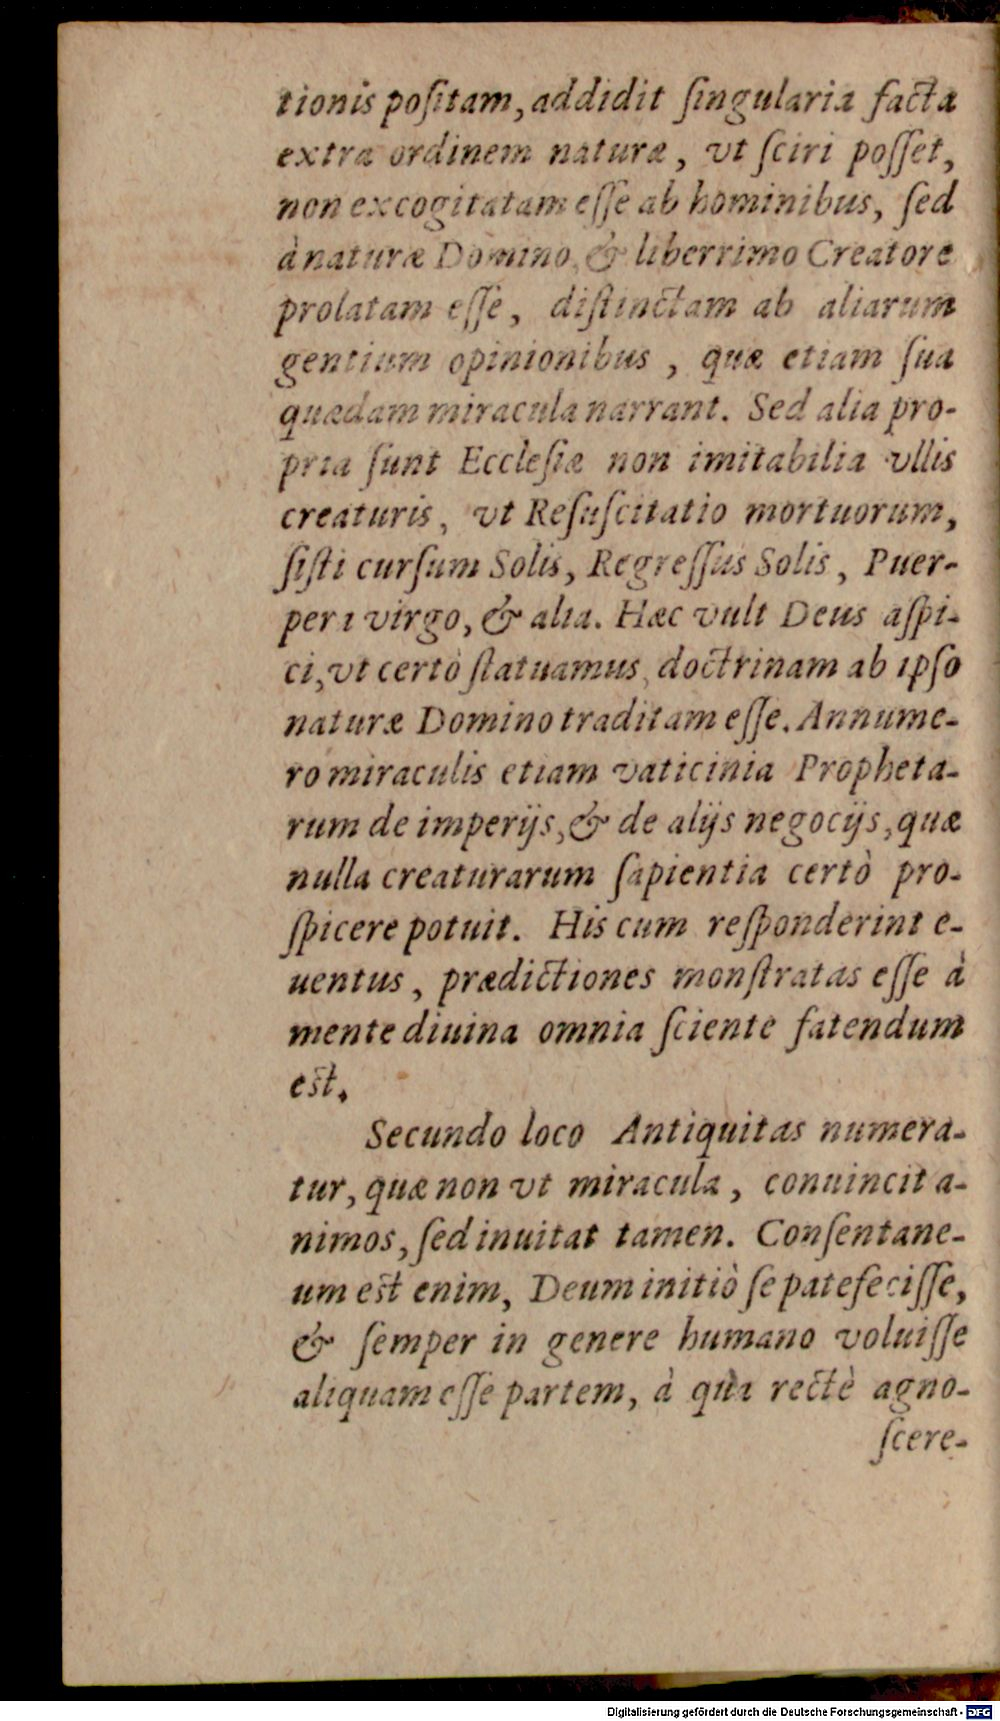 tionis poſitam, addidit ſingularia facta
extra ordinem naturæ, vt ſciri poſſet,
non excogitatam eſſe ab hominibus, ſed
à naturæ Domino, & liberrimo Creatore
prolatam eſſe, diſtinctam ab aliarum
gentium opinionibus, quæ etiam ſua
quædam miracula narrant. Sed alia pro-
pria ſunt Eccleſiæ non imitabilia vllis
creaturis, vt Reſuſcitatio mortuorum,
ſiſti curſum Solis, Regreſſus Solis, Puer-
peri virgo, & alia. Hæc vult Deus aſpi-
ci, vt certò ſtatuamus, doctrinam ab ipſo
naturæ Domino traditam eſſe. Annume-
ro miraculis etiam vaticinia Propheta-
rum de imperijs, & de alijs negocijs, quæ
nulla creaturarum ſapientia certò pro-
ſpicere potuit. His cum reſponderint e-
uentus, prædictiones monſtratas eſſe à
mente diuina omnia ſciente fatendum
eſt.
Secundo loco Antiquitas numera-
tur, quæ non vt miracula, conuincit a-
nimos, ſed inuitat tamen. Conſentane-
um eſt enim, Deum initiò ſe patefeciſſe,
& ſemper in genere humano voluiſſe
aliquam eſſe partem, à qua rectè agno-
ſcere-
Digitalisierung gefördert durch die Deutsche Forschungsgemeinschaft - DFG